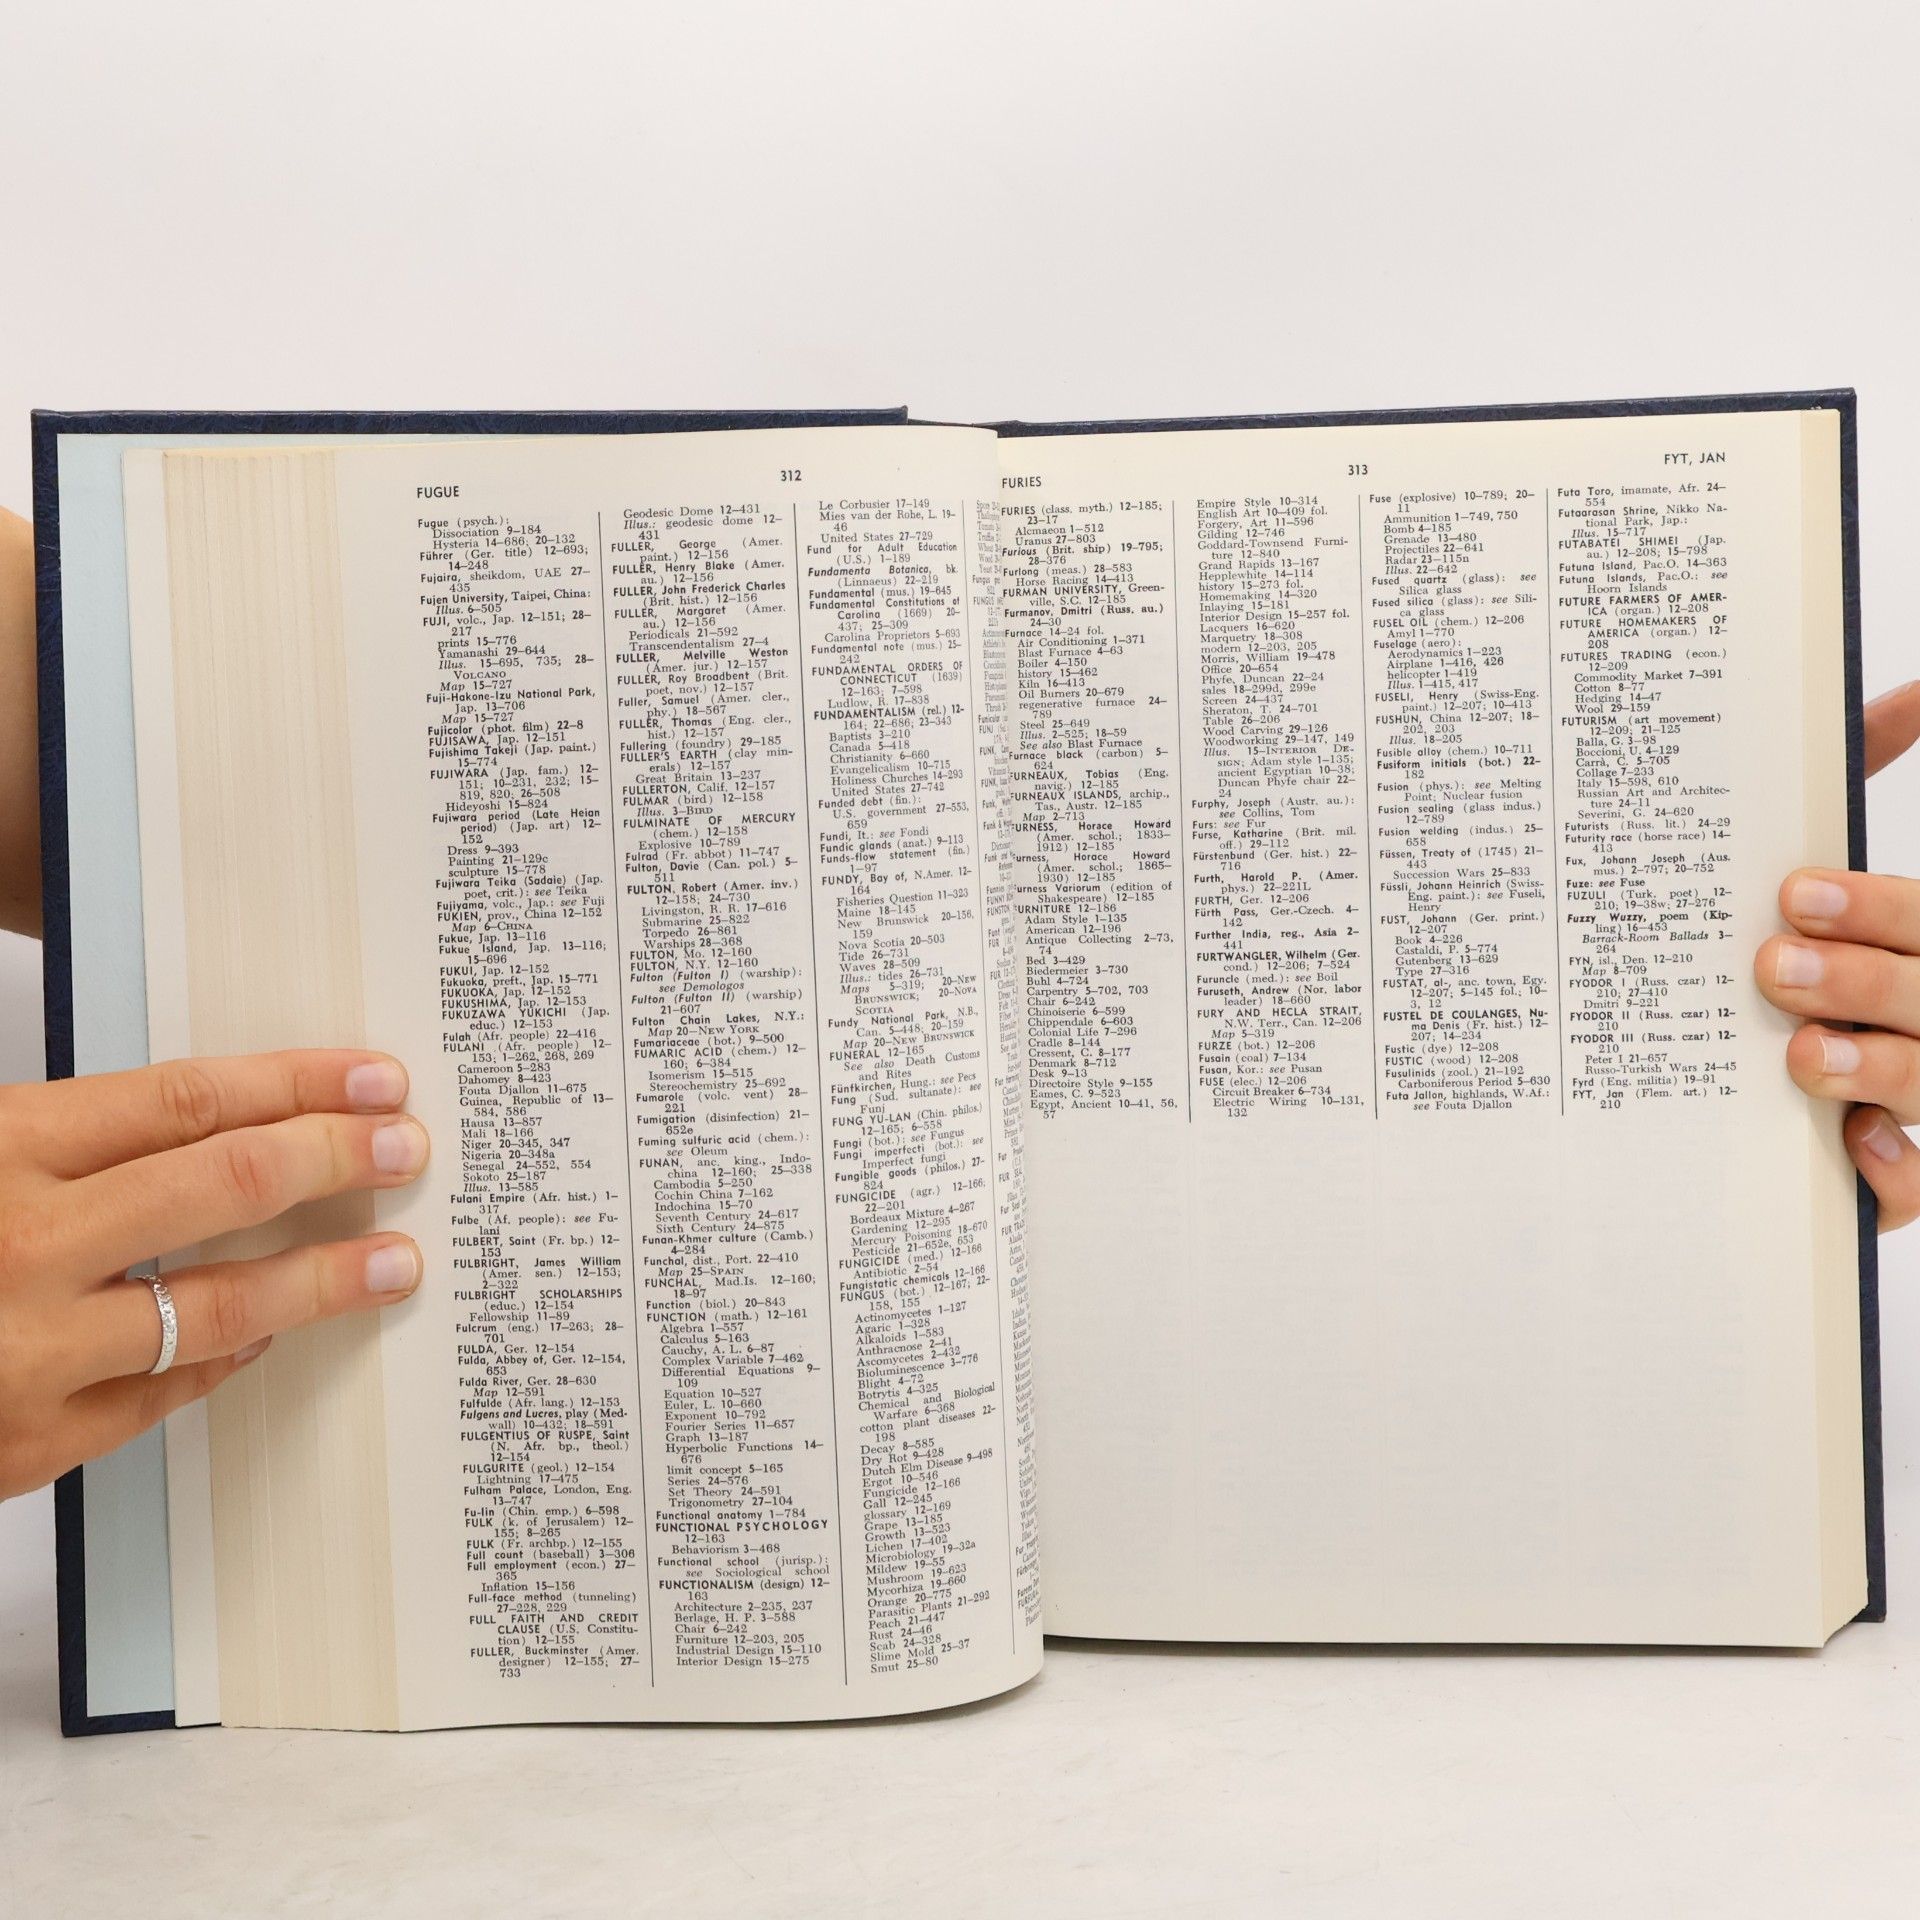 FUGUE
312
Fugue (psych.):
Dissociation 9–184
Hysteria 14–686; 20–132
Führer (Ger. title) 12–693;
14–248
Fujaira, sheikdom, UAE 27–
435
Fujen University, Taipei, China:
Illus. 6–505
FUJI, volc., Jap. 12–151; 28–
217
prints 15–776
Yamanashi 29–644
Illus. 15–695, 735; 28–
VOLCANO
Map 15–727
Fuji-Hakone-Izu National Park,
Jap. 13–706
Map 15–727
Fujicolor (phot. film) 22–8
FUJISAWA, Jap. 12–151
Fujishima Takeji (Jap. paint.)
15–774
FUJIWARA (Jap. fam.) 12–
151; 10–231, 232; 15–
819, 820; 26–508
Hideyoshi 15–824
Fujiwara period (Late Heian
period) (Jap. art) 12–
152
Dress 9–393
Painting 21–129c
sculpture 15–778
Fujiwara Teika (Sadaie) (Jap.
poet, crit.): see Teika
Fujiyama, volc., Jap.: see Fuji
FUKIEN, prov., China 12–152
Map 6–CHINA
Fukue, Jap. 13–116
Fukue Island, Jap. 13–116;
15–696
FUKUI, Jap. 12–152
Fukuoka, preft., Jap. 15–771
FUKUOKA, Jap. 12–152
FUKUSHIMA, Jap. 12–153
FUKUZAWA YUKICHI (Jap.
educ.) 12–153
Fulah (Afr. people) 22–416
FULANI (Afr. people) 12–
153; 1–262, 268, 269
Cameroon 5–283
Dahomey 8–423
Fouta Djallon 11–675
Guinea, Republic of 13–
584, 586
Hausa 13–857
Mali 18–166
Niger 20–345, 347
Nigeria 20–348a
Senegal 24–552, 554
Sokoto 25–187
Illus. 13–585
Fulani Empire (Afr. hist.) 1–
317
Fulbe (Af. people): see Fu-
lani
FULBERT, Saint (Fr. bp.) 12–
153
FULBRIGHT, James William
(Amer. sen.) 12–153;
2–322
FULBRIGHT SCHOLARSHIPS
(educ.) 12–154
Fellowship 11–89
Fulcrum (eng.) 17–263; 28–
701
FULDA, Ger. 12–154
Fulda, Abbey of, Ger. 12–154,
653
Fulda River, Ger. 28–630
Map 12–591
Fulfulde (Afr. lang.) 12–153
Fulgens and Lucres, play (Med-
wall) 10–432; 18–591
FULGENTIUS OF RUSPE, Saint
(N. Afr. bp., theol.)
12–154
FULGURITE (geol.) 12–154
Lightning 17–475
Fulham Palace, London, Eng.
13–747
Fu-lin (Chin. emp.) 6–598
FULK (k. of Jerusalem) 12–
155; 8–265
FULK (Fr. archbp.) 12–155
Full count (baseball) 3–306
Full employment (econ.) 27–
365
Inflation 15–156
Full-face method (tunneling)
27–228, 229
FULL FAITH AND CREDIT
CLAUSE (U.S. Constitu-
tion) 12–155
FULLER, Buckminster (Amer.
designer) 12–155; 27–
733
Geodesic Dome 12–431
Illus.: geodesic dome 12–
431
FULLER, George (Amer.
paint.) 12–156
FULLER, Henry Blake (Amer.
au.) 12–156
FULLER, John Frederick Charles
(Brit. hist.) 12–156
FULLER, Margaret (Amer.
au.) 12–156
Periodicals 21–592
Transcendentalism 27–4
FULLER, Melville Weston
(Amer. jur.) 12–157
FULLER, Roy Broadbent (Brit.
poet, nov.) 12–157
Fuller, Samuel (Amer. cler.,
phy.) 18–567
FULLER, Thomas (Eng. cler.,
hist.) 12–157
Fullering (foundry) 29–185
FULLER'S EARTH (clay min-
erals) 12–157
Great Britain 13–237
FULLERTON, Calif. 12–157
FULMAR (bird) 12–158
Illus. 3–BIRD
FULMINATE OF MERCURY
(chem.) 12–158
Explosive 10–789
Fulrad (Fr. abbot) 11–747
Fulton, Davie (Can. pol.) 5–
511
FULTON, Robert (Amer. inv.)
12–158; 24–730
Livingston, R. R. 17–616
Submarine 25–822
Torpedo 26–861
Warships 28–368
FULTON, Mo. 12–160
FULTON, N.Y. 12–160
Fulton (Fulton I) (warship):
see Demologos
Fulton (Fulton II) (warship)
21–607
Fulton Chain Lakes, N.Y.:
Map 20–NEW YORK
Fumariaceae (bot.) 9–500
FUMARIC ACID (chem.) 12–
160; 6–384
Isomerism 15–515
Stereochemistry 25–692
Fumarole (volc. vent) 28–
221
Fumigation (disinfection) 21–
652e
Fuming sulfuric acid (chem.):
see Oleum
FUNAN, anc. king., Indo-
china 12–160; 25–338
Cambodia 5–250
Cochin China 7–162
Indochina 15–70
Seventh Century 24–617
Sixth Century 24–875
Funan-Khmer culture (Camb.)
4–284
Funchal, dist., Port. 22–410
Map 25–SPAIN
FUNCHAL, Mad.Is. 12–160;
18–97
Function (biol.) 20–843
FUNCTION (math.) 12–161
Algebra 1–557
Calculus 5–163
Cauchy, A. L. 6–87
Complex Variable 7–462
Differential Equations 9–
109
Equation 10–527
Euler, L. 10–660
Exponent 10–792
Fourier Series 11–657
Graph 13–187
Hyperbolic Functions 14–
676
limit concept 5–165
Series 24–576
Set Theory 24–591
Trigonometry 27–104
Functional anatomy 1–784
FUNCTIONAL PSYCHOLOGY
12–163
Behaviorism 3–468
Functional school (jurisp.):
see Sociological school
FUNCTIONALISM (design) 12–
163
Architecture 2–235, 237
Berlage, H. P. 3–588
Chair 6–242
Furniture 12–203, 205
Industrial Design 15–110
Interior Design 15–275
Le Corbusier 17–149
Mies van der Rohe, L. 19–
46
United States 27–729
Fund for Adult Education
(U.S.) 1–189
Fundamenta Botanica, bk.
(Linnaeus) 22–219
Fundamental (mus.) 19–645
Fundamental Constitutions of
Carolina (1669) 20–
437; 25–309
Carolina Proprietors 5–693
Fundamental note (mus.) 25–
242
FUNDAMENTAL ORDERS OF
CONNECTICUT (1639)
12–163; 7–598
Ludlow, R. 17–838
FUNDAMENTALISM (rel.) 12–
164; 22–686; 23–343
Baptists 3–210
Canada 5–418
Christianity 6–660
Evangelicalism 10–715
Holiness Churches 14–293
United States 27–742
Funded debt (fin.):
U.S. government 27–553,
659
Fundi, It.: see Fondi
Fundic glands (anat.) 9–113
Funds-flow statement (fin.)
1–97
FUNDY, Bay of, N.Amer. 12–
164
Fisheries Question 11–323
Maine 18–145
New Brunswick 20–156,
159
Nova Scotia 20–503
Tide 26–731
Waves 28–509
Illus.: tides 26–731
Maps 5–319; 20–NEW
BRUNSWICK; 20–NOVA
SCOTIA
Fundy National Park, N.B.,
Can. 5–448; 20–159
Map 20–NEW BRUNSWICK
FUNERAL 12–165
See also Death Customs
and Rites
Fünfkirchen, Hung.: see Pecs
Fung (Sud. sultanate): see
Funj
FUNG YU-LAN (Chin. philos.)
12–165; 6–558
Fungi (bot.): see Fungus
Fungi imperfecti (bot.): see
Imperfect fungi
Fungible goods (philos.) 27–
824
FUNGICIDE (agr.) 12–166;
22–201
Bordeaux Mixture 4–267
Gardening 12–295
Mercury Poisoning 18–670
Pesticide 21–652e, 653
FUNGICIDE (med.) 12–166
Antibiotic 2–54
Fungistatic chemicals 12–166
FUNGUS (bot.) 12–167; 22–
158, 155
Actinomycetes 1–127
Agaric 1–328
Alkaloids 1–583
Anthracnose 2–41
Ascomycetes 2–432
Bioluminescence 3–776
Blight 4–72
Botrytis 4–325
Chemical and Biological
Warfare 6–368
cotton plant diseases 22–
198
Decay 8–585
Dry Rot 9–428
Dutch Elm Disease 9–498
Ergot 10–546
Fungicide 12–166
Gall 12–245
glossary 12–169
Grape 13–185
Growth 13–523
Lichen 17–402
Microbiology 19–32a
Mildew 19–55
Mushroom 19–623
Mycorhiza 19–660
Orange 20–775
Parasitic Plants 21–292
Peach 21–447
Rust 24–46
Scab 24–328
Slime Mold 25–37
Smut 25–80
FURIES
313
FYT, JAN
FURIES (class. myth.) 12–185;
23–17
Alcmaeon 1–512
Uranus 27–803
Furious (Brit. ship) 19–795;
28–376
Furlong (meas.) 28–583
Horse Racing 14–413
FURMAN UNIVERSITY, Green-
ville, S.C. 12–185
Furmanov, Dmitri (Russ. au.)
24–30
Furnace 14–24 fol.
Air Conditioning 1–371
Blast Furnace 4–63
Boiler 4–150
history 15–462
Kiln 16–413
Oil Burners 20–679
regenerative furnace 24–
789
Steel 25–649
Illus. 2–525; 18–59
See also Blast Furnace
Furnace black (carbon) 5–
624
FURNEAUX, Tobias (Eng.
navig.) 12–185
FURNEAUX ISLANDS, archip.,
Tas., Austr. 12–185
Map 2–713
FURNESS, Horace Howard
(Amer. schol.; 1833–
1912) 12–185
Furness, Horace Howard
(Amer. schol.; 1865–
1930) 12–185
Furness Variorum (edition of
Shakespeare) 12–185
FURNITURE 12–186
Adam Style 1–135
American 12–196
Antique Collecting 2–73,
74
Bed 3–429
Biedermeier 3–730
Buhl 4–724
Carpentry 5–702, 703
Chair 6–242
Chinoiserie 6–599
Chippendale 6–603
Colonial Life 7–296
Cradle 8–144
Cressent, C. 8–177
Denmark 8–712
Desk 9–13
Directoire Style 9–155
Eames, C. 9–523
Egypt, Ancient 10–41, 56,
57
Empire Style 10–314
English Art 10–409 fol.
Forgery, Art 11–596
Gilding 12–746
Goddard-Townsend Furni-
ture 12–840
Grand Rapids 13–167
Hepplewhite 14–114
history 15–273 fol.
Homemaking 14–320
Inlaying 15–181
Interior Design 15–257 fol.
Lacquers 16–620
Marquetry 18–308
modern 12–203, 205
Morris, William 19–478
Office 20–654
Phyfe, Duncan 22–24
sales 18–299d, 299e
Screen 24–437
Sheraton, T. 24–701
Table 26–206
Wood Carving 29–126
Woodworking 29–147, 149
Illus. 15–INTERIOR DE-
SIGN; Adam style 1–135;
ancient Egyptian 10–38;
Duncan Phyfe chair 22–
24
Furphy, Joseph (Austr. au.):
see Collins, Tom
Furs: see Fur
Furse, Katharine (Brit. mil.
off.) 29–112
Fürstenbund (Ger. hist.) 22–
716
Furth, Harold P. (Amer.
phys.) 22–221L
FURTH, Ger. 12–206
Fürth Pass, Ger.-Czech. 4–
142
Further India, reg., Asia 2–
441
FURTWANGLER, Wilhelm (Ger.
cond.) 12–206; 7–524
Furuncle (med.): see Boil
Furuseth, Andrew (Nor. labor
leader) 18–660
FURY AND HECLA STRAIT,
N.W. Terr., Can. 12–206
Map 5–319
FURZE (bot.) 12–206
Fusain (coal) 7–134
Fusan, Kor.: see Pusan
FUSE (elec.) 12–206
Circuit Breaker 6–734
Electric Wiring 10–131,
132
Fuse (explosive) 10–789; 20–
11
Ammunition 1–749, 750
Bomb 4–185
Grenade 13–480
Projectiles 22–641
Radar 23–115n
Illus. 22–642
Fused quartz (glass): see
Silica glass
Fused silica (glass): see Sili-
ca glass
FUSEL OIL (chem.) 12–206
Amyl 1–770
Fuselage (aero):
Aerodynamics 1–223
Airplane 1–416, 426
helicopter 1–419
Illus. 1–415, 417
FUSELI, Henry (Swiss-Eng.
paint.) 12–207; 10–413
FUSHUN, China 12–207; 18–
202, 203
Illus. 18–205
Fusible alloy (chem.) 10–711
Fusiform initials (bot.) 22–
182
Fusion (phys.): see Melting
Point; Nuclear fusion
Fusion sealing (glass indus.)
12–789
Fusion welding (indus.) 25–
658
Füssen, Treaty of (1745) 21–
443
Succession Wars 25–833
Füssli, Johann Heinrich (Swiss-
Eng. paint.): see Fuseli,
Henry
FUST, Johann (Ger. print.)
12–207
Book 4–226
Castaldi, P. 5–774
Gutenberg 13–629
Type 27–316
FUSTAT, al-, anc. town, Egy.
12–207; 5–145 fol.; 10–
3, 12
FUSTEL DE COULANGES, Nu-
ma Denis (Fr. hist.) 12–
207; 14–234
Fustic (dye) 12–208
FUSTIC (wood) 12–208
Fusulinids (zool.) 21–192
Carboniferous Period 5–630
Futa Jallon, highlands, W.Af.:
see Fouta Djallon
Futa Toro, imamate, Afr. 24–
554
Futaarasan Shrine, Nikko Na-
tional Park, Jap.:
Illus. 15–717
FUTABATEI SHIMEI (Jap.
au.) 12–208; 15–798
Futuna Island, Pac.O. 14–363
Futuna Islands, Pac.O.: see
Hoorn Islands
FUTURE FARMERS OF AMER-
ICA (organ.) 12–208
FUTURE HOMEMAKERS OF
AMERICA (organ.) 12–
208
FUTURES TRADING (econ.)
12–209
Commodity Market 7–391
Cotton 8–77
Hedging 14–47
Wool 29–159
FUTURISM (art movement)
12–209; 21–125
Balla, G. 3–98
Boccioni, U. 4–129
Carrà, C. 5–705
Collage 7–233
Italy 15–598, 610
Russian Art and Architec-
ture 24–11
Severini, G. 24–620
Futurists (Russ. lit.) 24–29
Futurity race (horse race) 14–
413
Fux, Johann Joseph (Aus.
mus.) 2–797; 20–752
Fuze: see Fuse
FUZULI (Turk. poet) 12–
210; 19–38w; 27–276
Fuzzy Wuzzy, poem (Kip-
ling) 16–453
Barrack-Room Ballads 3–
264
FYN, isl., Den. 12–210
Map 8–709
FYODOR I (Russ. czar) 12–
210; 27–410
Dmitri 9–221
FYODOR II (Russ. czar) 12–
210
FYODOR III (Russ. czar) 12–
210
Peter I 21–657
Russo-Turkish Wars 24–45
Fyrd (Eng. militia) 19–91
FYT, Jan (Flem. art.) 12–
210